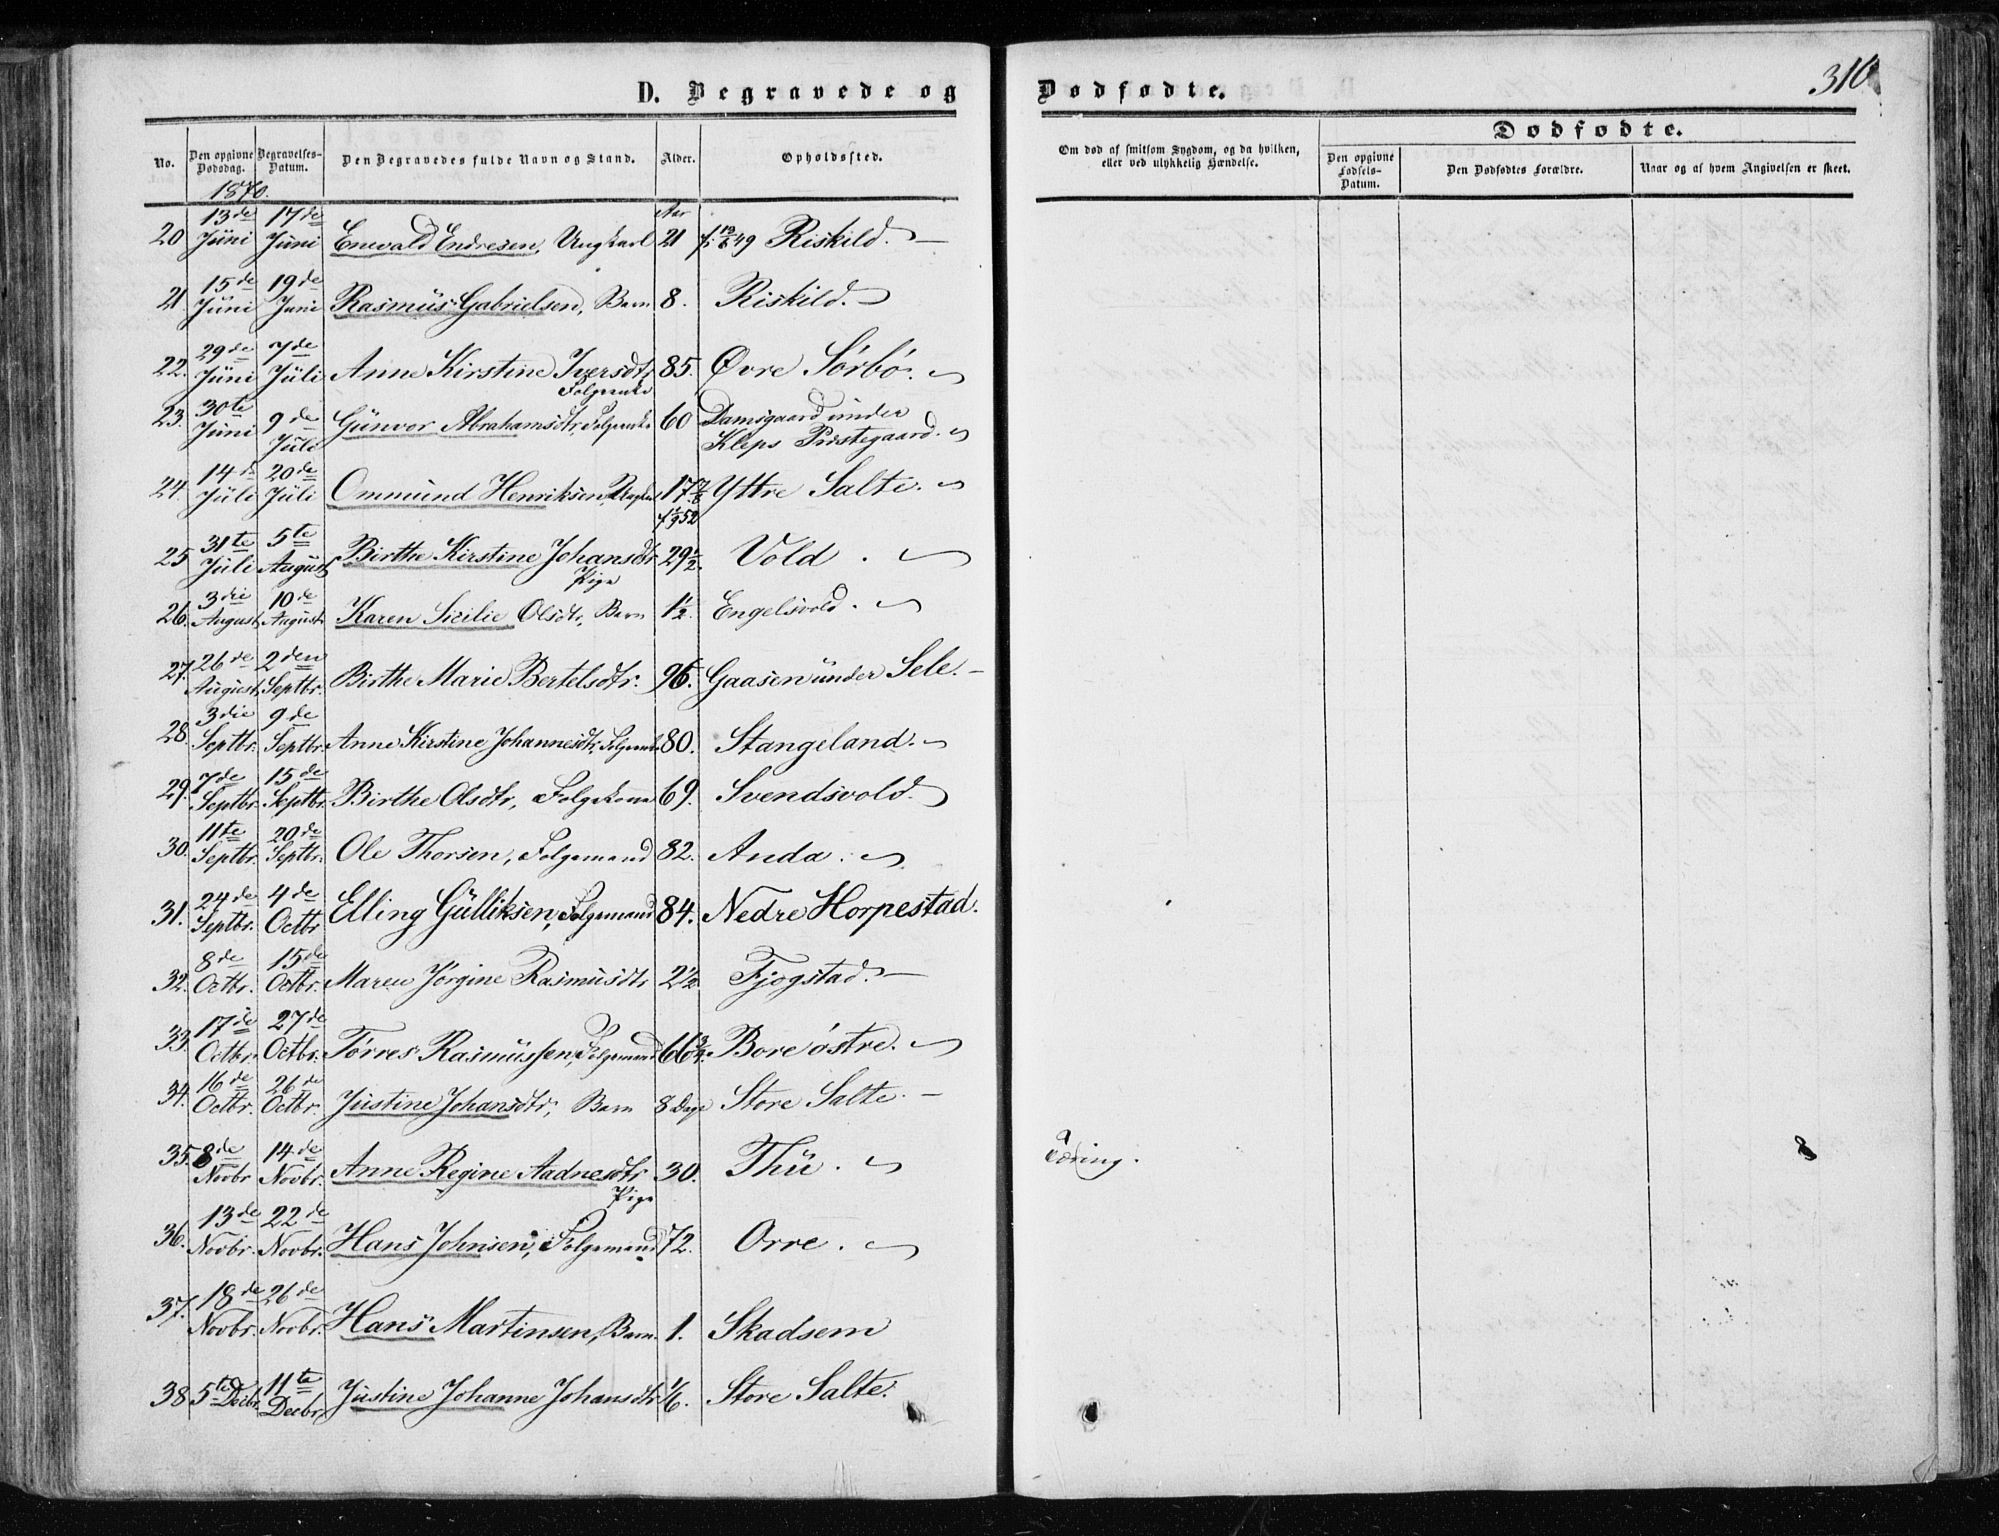 D. Begravede og Dødfødte.
310
No.
Den opgivne Dødsdag.
Begravelses-Datum.
Den Begravedes fulde Navn og Stand.
Alder.
Opholdssted.
Om død af smitsom Sygdom, og da hvilken, eller ved ulykkelig Hændelse.
Dødfødte.
Den opgivne Fødsels-Datum.
Den Dødfødtes Forældre.
Naar og af hvem Angivelsen er skeet.
1870.
20 13de Juni 17de Juni Enevald Endresen, Ungkarl Aar 21 f. 19/6 49 Riskild.
21 15de Juni 19de Juni Rasmus Gabrielsen, Barn 8. Riskild.
22. 29de Juni 7de Juli Anne Kirstine Iversdtr Folgeenke 85. Øvre Sörbö.
23. 30te Juni 9de Juli Gunvor Abrahamsdtr, Folgeenke 60 Damsgaard under Kleps Prestegaard.
24 14de Juli 20de Juli Ommund Henriksen, Ungkarl 17 f 1/9 52 Yttre Salte.
25 31te Juli 5te August Birthe Kirstine Johansdtr Pige 29 1/2. Vold.
26. 3die August 10de August Karen Sicilie Olsdtr, Barn 1 1/2. Engelsvold.
27. 26de August 2den Septbr. Birthe Marie Bertelsdtr. 96. Gaasen under Sele.
28. 3die Septbr. 9de Septbr. Anne Kirstine Johannesdtr, Folgeenke 80. Stangeland.
29. 7de Septbr. 15de Septbr. Birthe Olsdtr, Folgekone 69. Svendsvold.
30. 11te Septbr. 20de Septbr. Ole Thorsen, Folgemand 82. Anda.
31. 24de Septbr. 4de Octbr Elling Gulliksen, Folgemand 84. Nedre Horpestad.
32. 8de Octbr. 15de Octbr. Maren Jörgine Rasmusdtr 2 1/2 Fjogstad.
33. 17de Octbr. 27de Octbr. Törres Rasmussen, Folgemand 66 3/4. Bore östre.
34. 16de Octbr. 26de Octbr. Justine Johansdtr, Barn 8 Dage Store Salte.
35. 8de Novbr 14de Novbr. Anne Regine Aadnesdtr Pige 30. Thu. Tæring.
36. 13de Novbr. 22de Novbr. Hans Johnsen, Folgemand 72. Orre.
37. 18de Novbr. 26de Novbr. Hans Martinsen, Barn. 1. Skadsem
38 5te Decbr. 11te Decbr. Justine Johanne Johansdtr 1/6. Store Salte.